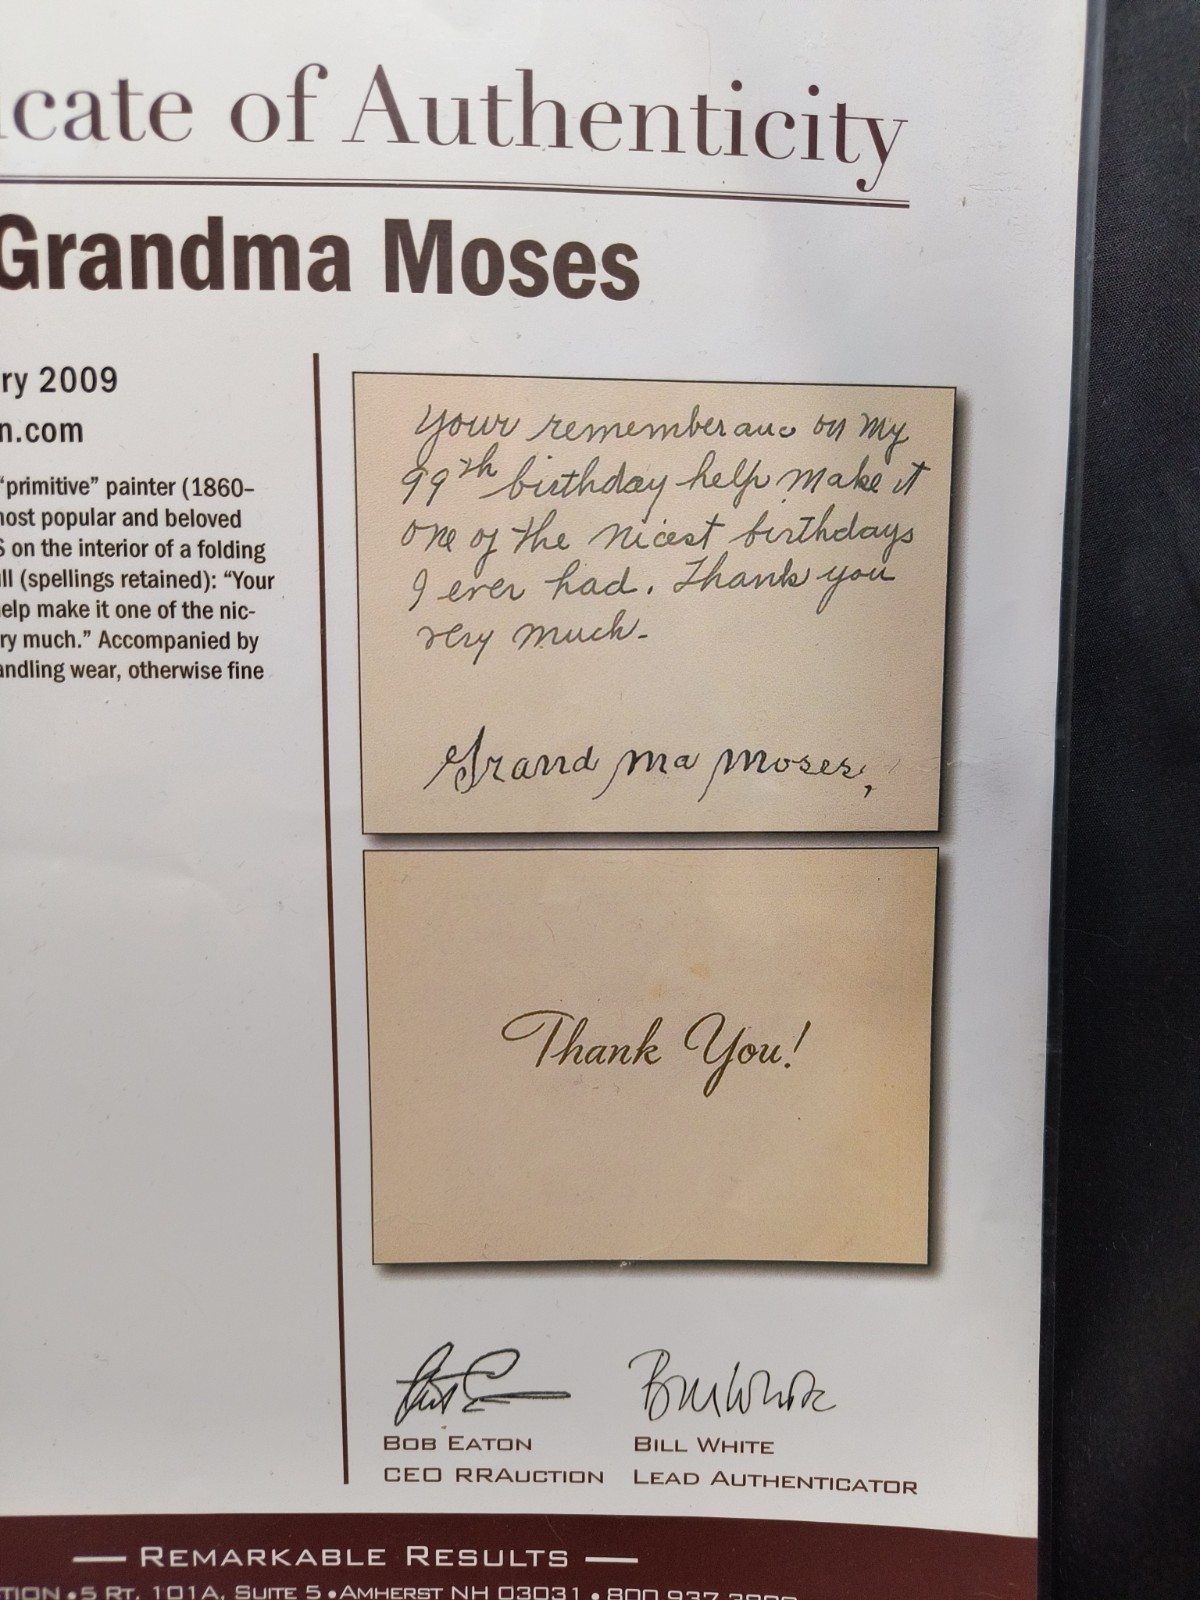 icate of Authenticity
Grandma Moses
ry 2009
n.com
"primitive" painter (1860–
nost popular and beloved
S on the interior of a folding
ll (spellings retained): "Your
elp make it one of the nic-
ry much." Accompanied by
andling wear, otherwise fine
Your rememberanc on my
99th birthday help make it
one of the nicest birthdays
I ever had. Thank you
very much-
Grand ma Moses,
Thank You!
Bob Eaton
CEO RRAuction
Bill White
Bill White
Lead Authenticator
— Remarkable Results —
TION • 5 Rt. 101A, Suite 5 • Amherst NH 03031 • 800 937